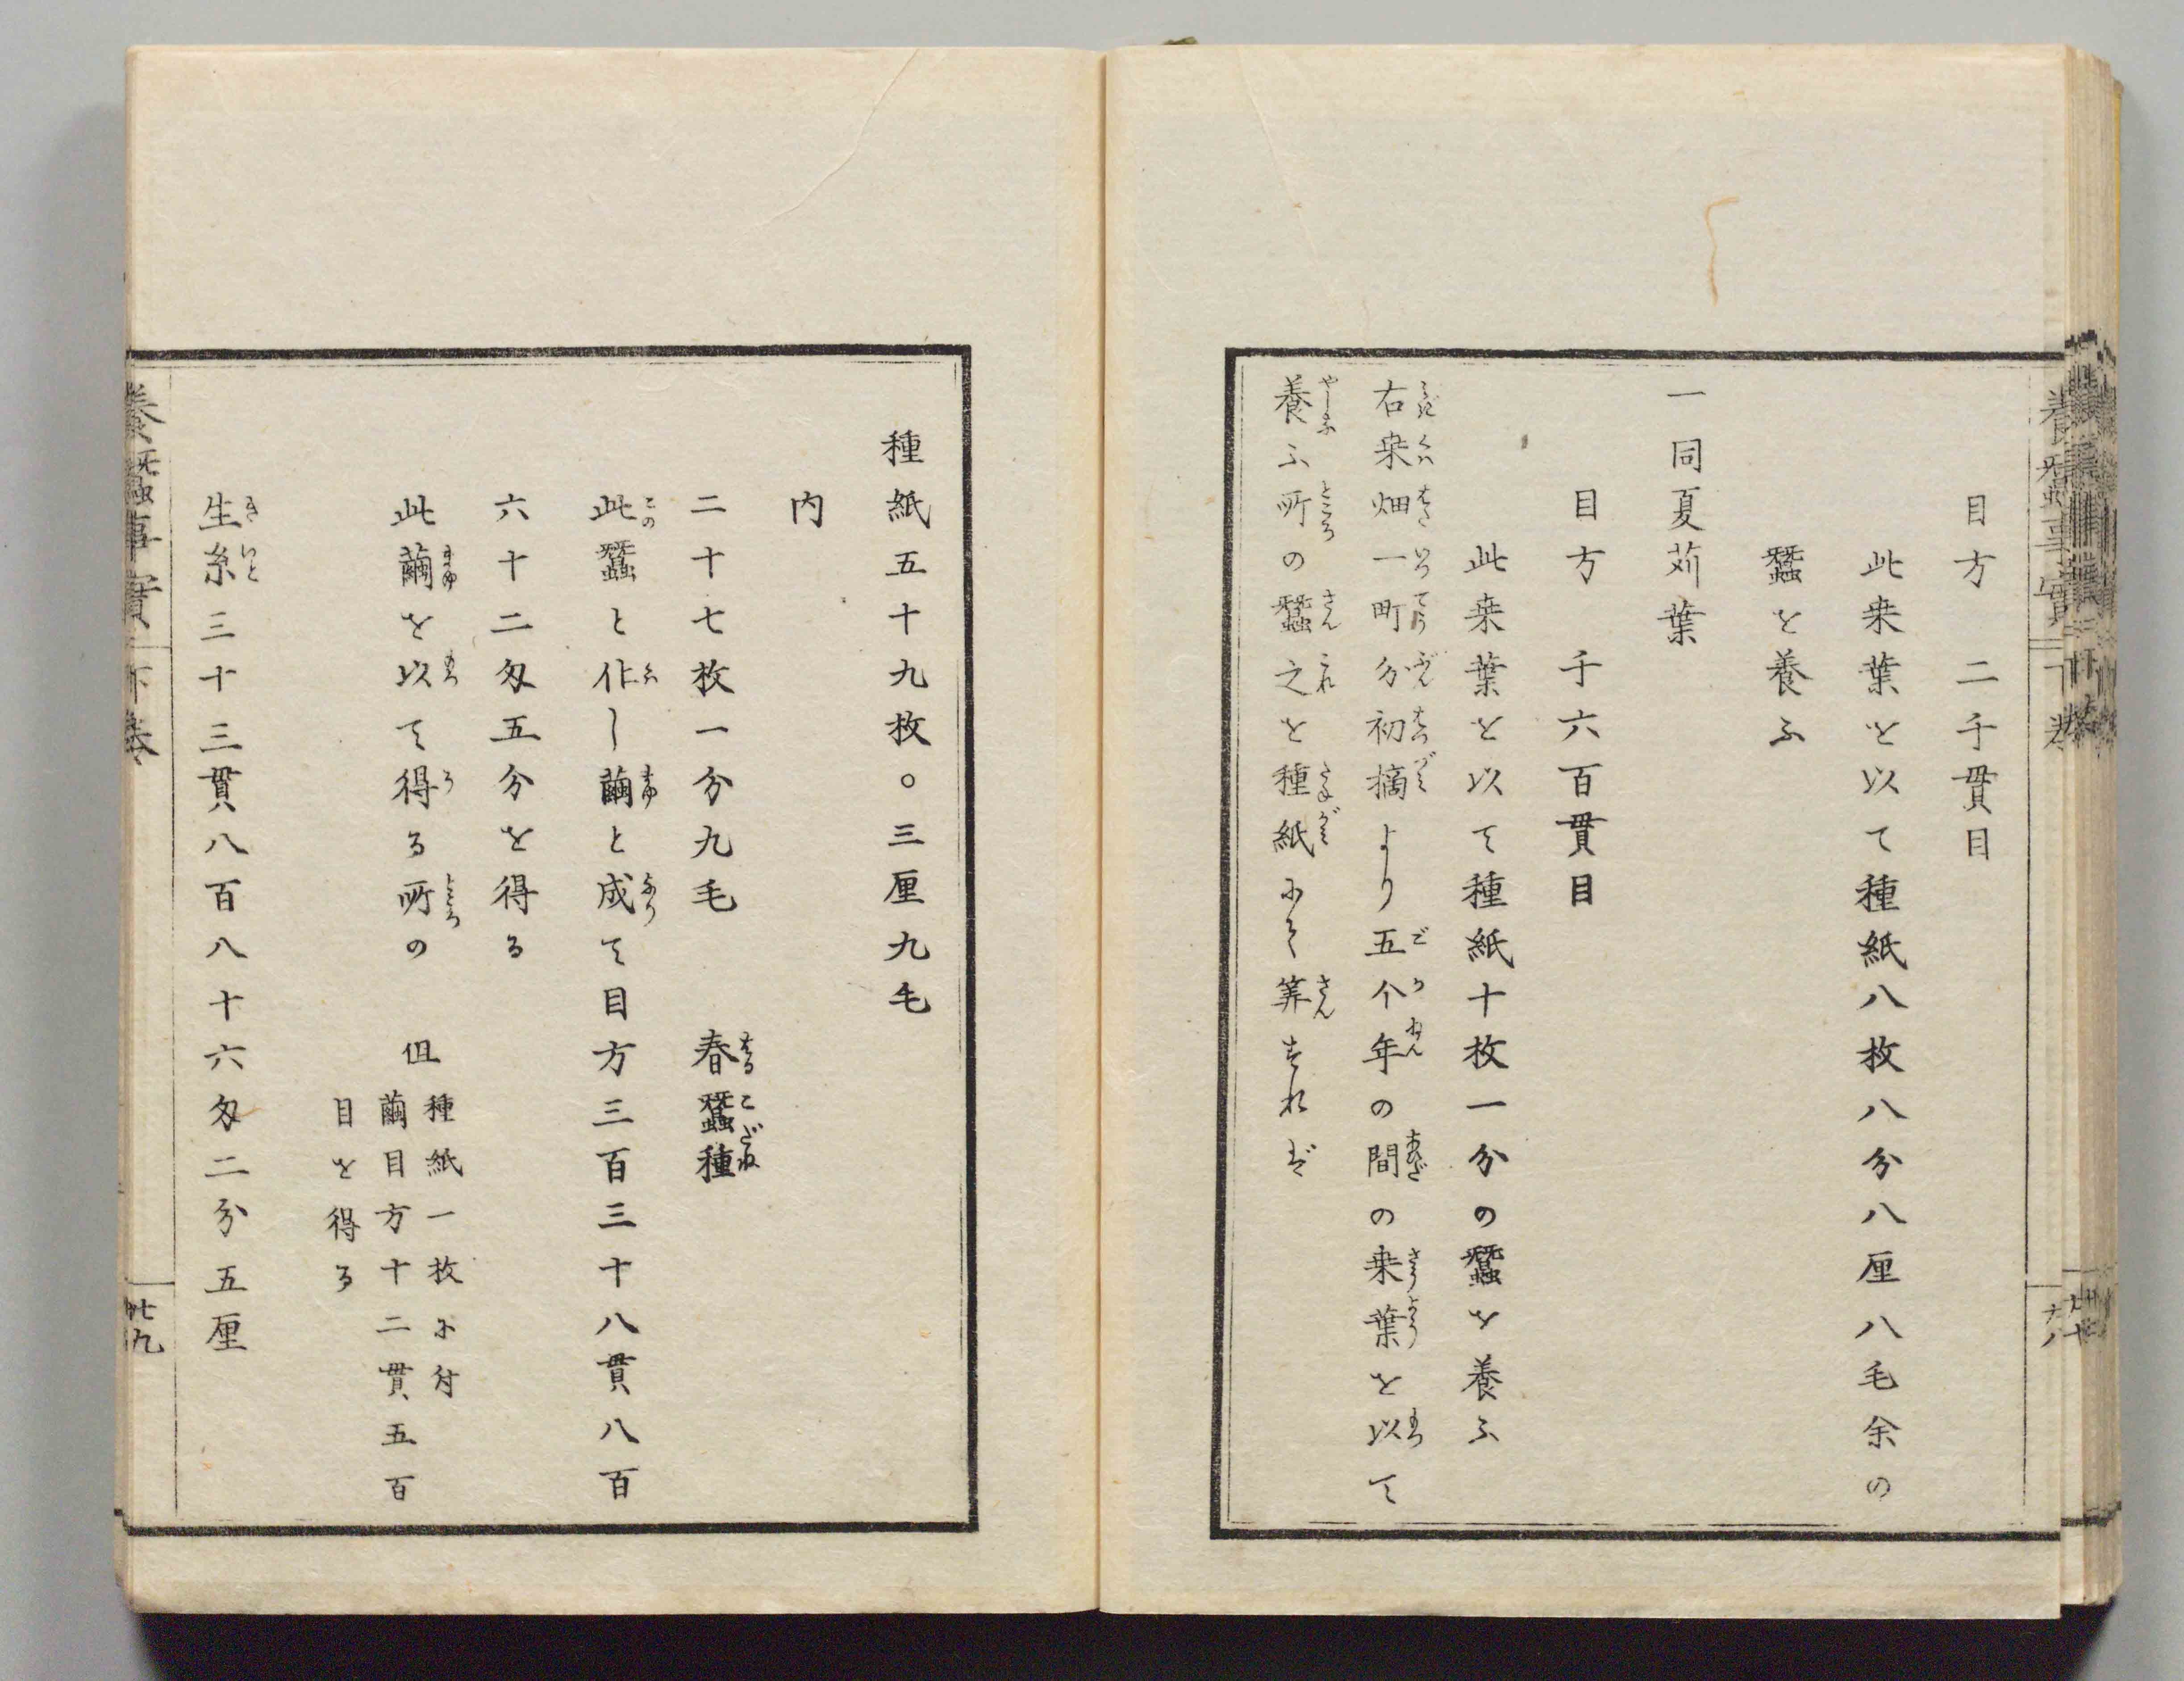 目方 二千貫目
此桒葉を以て種紙八枚八分八厘八毛余の
蚕を養ふ
一同夏苅葉
目方 千六百貫目
此桒葉を以て種紙十枚一分の蠶を養ふ
右桒畑一町分初摘より五个年の間の桒葉を以て
養ふ所の蠶之を種紙にて算すれば
種紙五十九枚〇三厘九毛
内
二十七枚一分九毛 春蠶種
此蠶を作し繭と成て目方三百三十八貫八百
六十二匁五分を得る
此繭を以て得る所の 但 種紙一枚に付
繭目方十二貫五百
目を得る
生糸三十三貫八百八十六匁二分五厘
養蠶事實 下巻 廿九